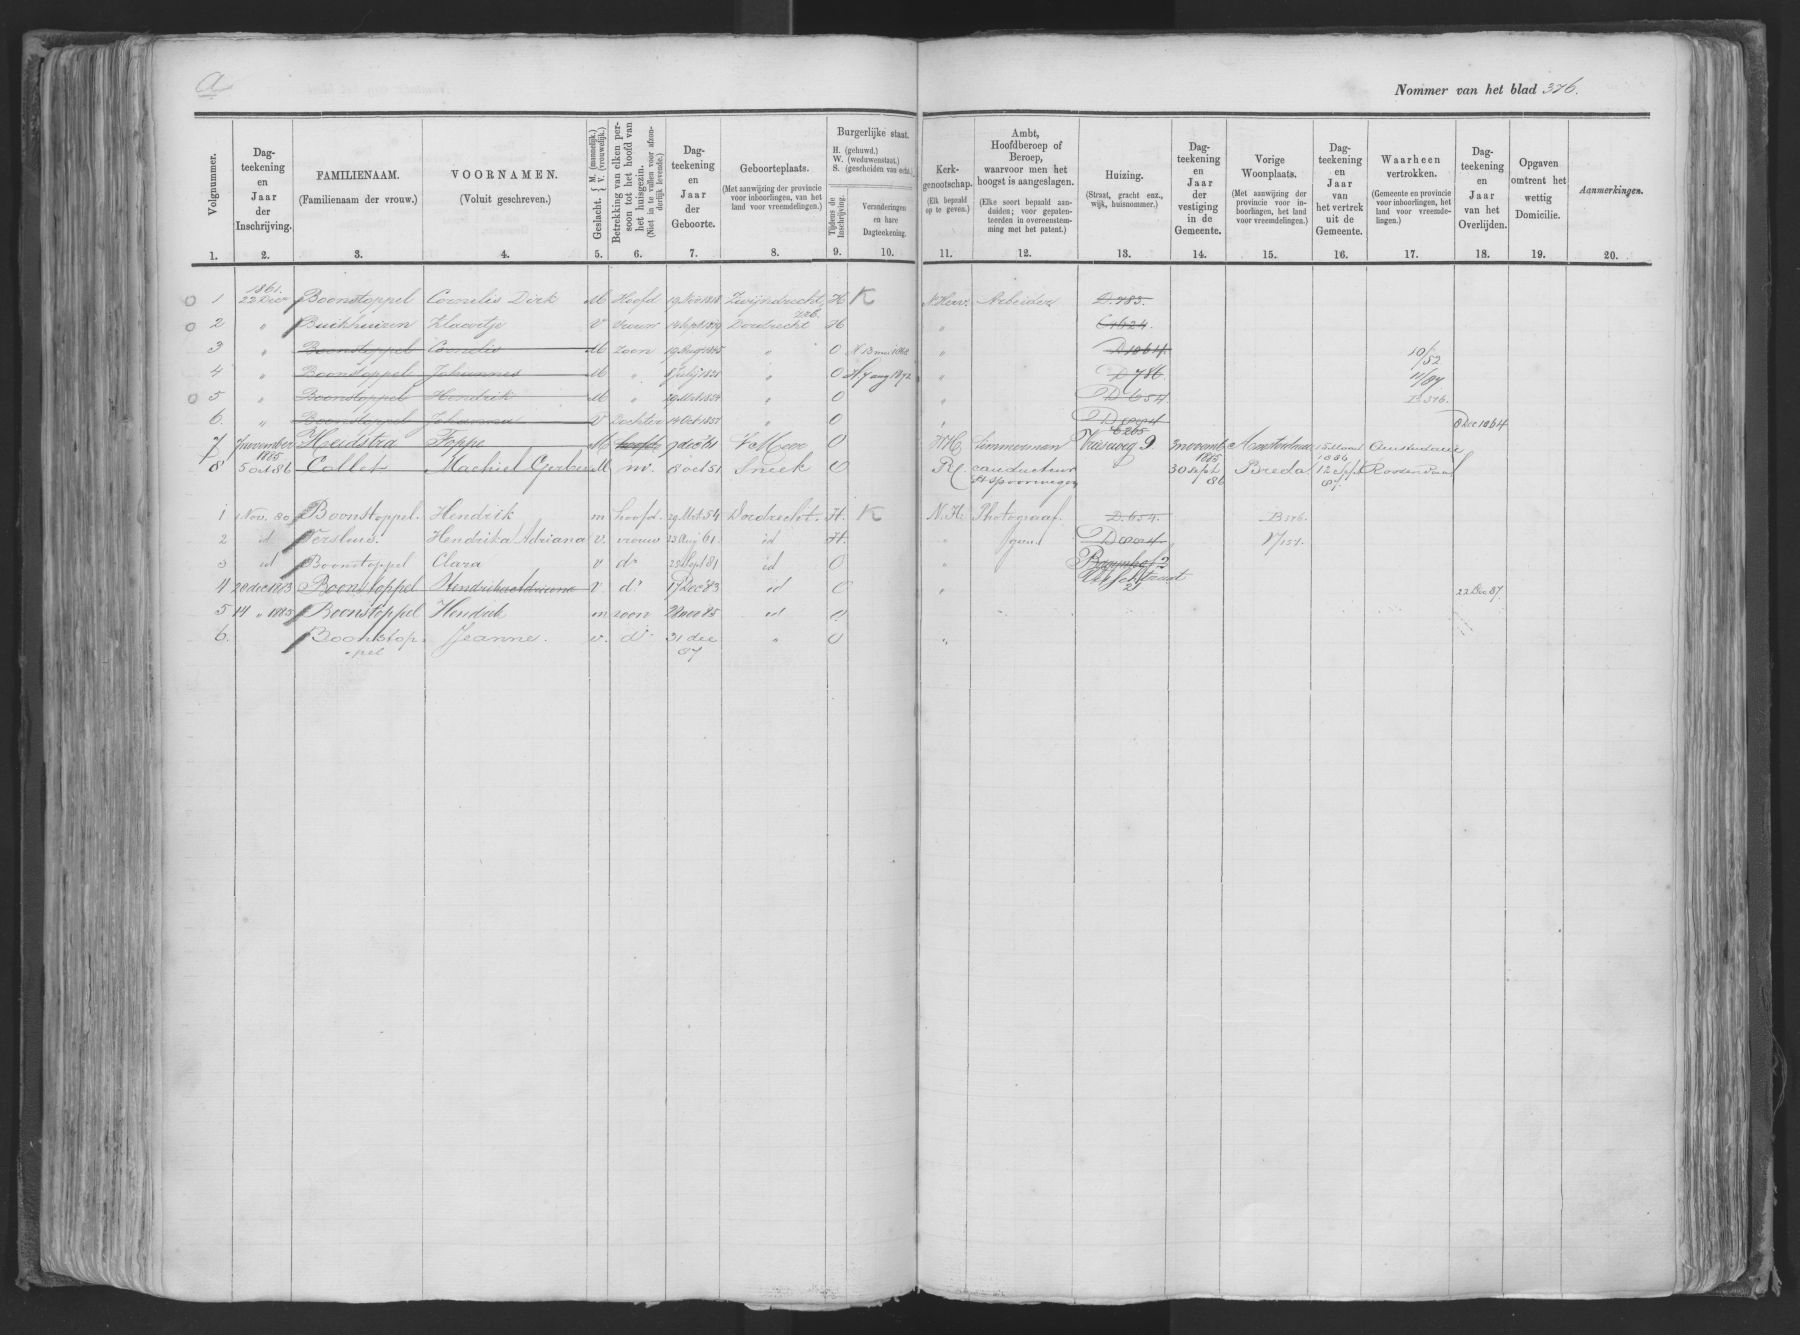 a
Nommer van het blad 376.
Volgnummer.
Dag-
teekening
en
Jaar
der
Inschrijving.
FAMILIENAAM.
(Familienaam der vrouw.)
VOORNAMEN.
(Voluit geschreven.)
Geslacht. { M. (mannelijk.) V. (vrouwelijk.)
Betrekking van elken per-
soon tot het hoofd van
het huisgezin.
(Niet in te vullen voor afzon-
derlijk levende.)
Dag-
teekening
en
Jaar
der
Geboorte.
Geboorteplaats.
(Met aanwijzing der provincie
voor inboorlingen, van het
land voor vreemdelingen.)
Burgerlijke staat.
H. (gehuwd.)
W. (weduwenstaat.)
S. (gescheiden van echt.)
Tijdens de
Inschrijving.
Veranderingen
en hare
Dagteekening.
Kerk-
genootschap.
(Elk bepaald
op te geven.)
Ambt,
Hoofdberoep of
Beroep,
waarvoor men het
hoogst is aangeslagen.
(Elke soort bepaald aan-
duiden; voor gepaten-
teerden in overeenstem-
ming met het patent.)
Huizing.
(Straat, gracht enz.,
wijk, huisnommer.)
Dag-
teekening
en
Jaar
der
vestiging
in de
Gemeente.
Vorige
Woonplaats.
(Met aanwijzing der
provincie voor in-
boorlingen, het land
voor vreemdelingen.)
Dag-
teekening
en
Jaar
van
het vertrek
uit de
Gemeente.
Waarheen
vertrokken.
(Gemeente en provincie
voor inboorlingen, het
land voor vreemde-
lingen.)
Dag-
teekening
en
Jaar
van het
Overlijden.
Opgaven
omtrent het
wettig
Domicilie.
Aanmerkingen.
1. 2. 3. 4. 5. 6. 7. 8. 9. 10. 11. 12. 13. 14. 15. 16. 17. 18. 19. 20.
1861.
1 22 Dec Boonstoppel Cornelis Dirk M Hoofd 19 Nov 1818 Zwijndrecht H K N. Herv. Arbeider D. 785.
2 " Buikhuizen Klaartje V Vrouw 14 Sept 1819 Dordrecht H "
3 " Boonstoppel Cornelis M Zoon 1845 " O " D 1064 10/52
4 " Boonstoppel Johannes M " " O H. 7 aug 1872 " D 786. 11/87
5 " Boonstoppel Hendrik M " 29 Mrt 1854 " O " D 654 B 376.
6. " Boonstoppel Johanna V Dochter 14 Oct 1857 " O " 8 Dec 1864
7 7 november 1885 Heidstra Foppe M hoofd 9 dec 61 O N H timmerman Vrieseweg 9 3 novemb 1885 Amsterdam 1886 Amsterdam
8 5 oct 86 Collet Machiel M m. 8 oct 51 Sneek O conducteur 30 sept 86 Breda 12 sept 87. Roosendaal
St spoorwegen
1 1 Nov. 80 Boonstoppel. Hendrik m hoofd. 29 Mrt 54 Dordrecht. H. K N. H. Photograaf. D. 654. B 376.
2 id Versluis. Hendrika Adriana v. vrouw 23 Aug 61. id H. " geen
3 id Boonstoppel Clara v dr 25 Sept 81 id O "
4 20 dec 1883 Boonstoppel Hendrika Adriana v. dr 17 Dec 83 id O " 22 Dec 87
5 14 " 1885 Boonstoppel Hendrik m zoon 85 id O
6. Boonstop- Jeanne. v. dr 31 dec " O "
pel 87